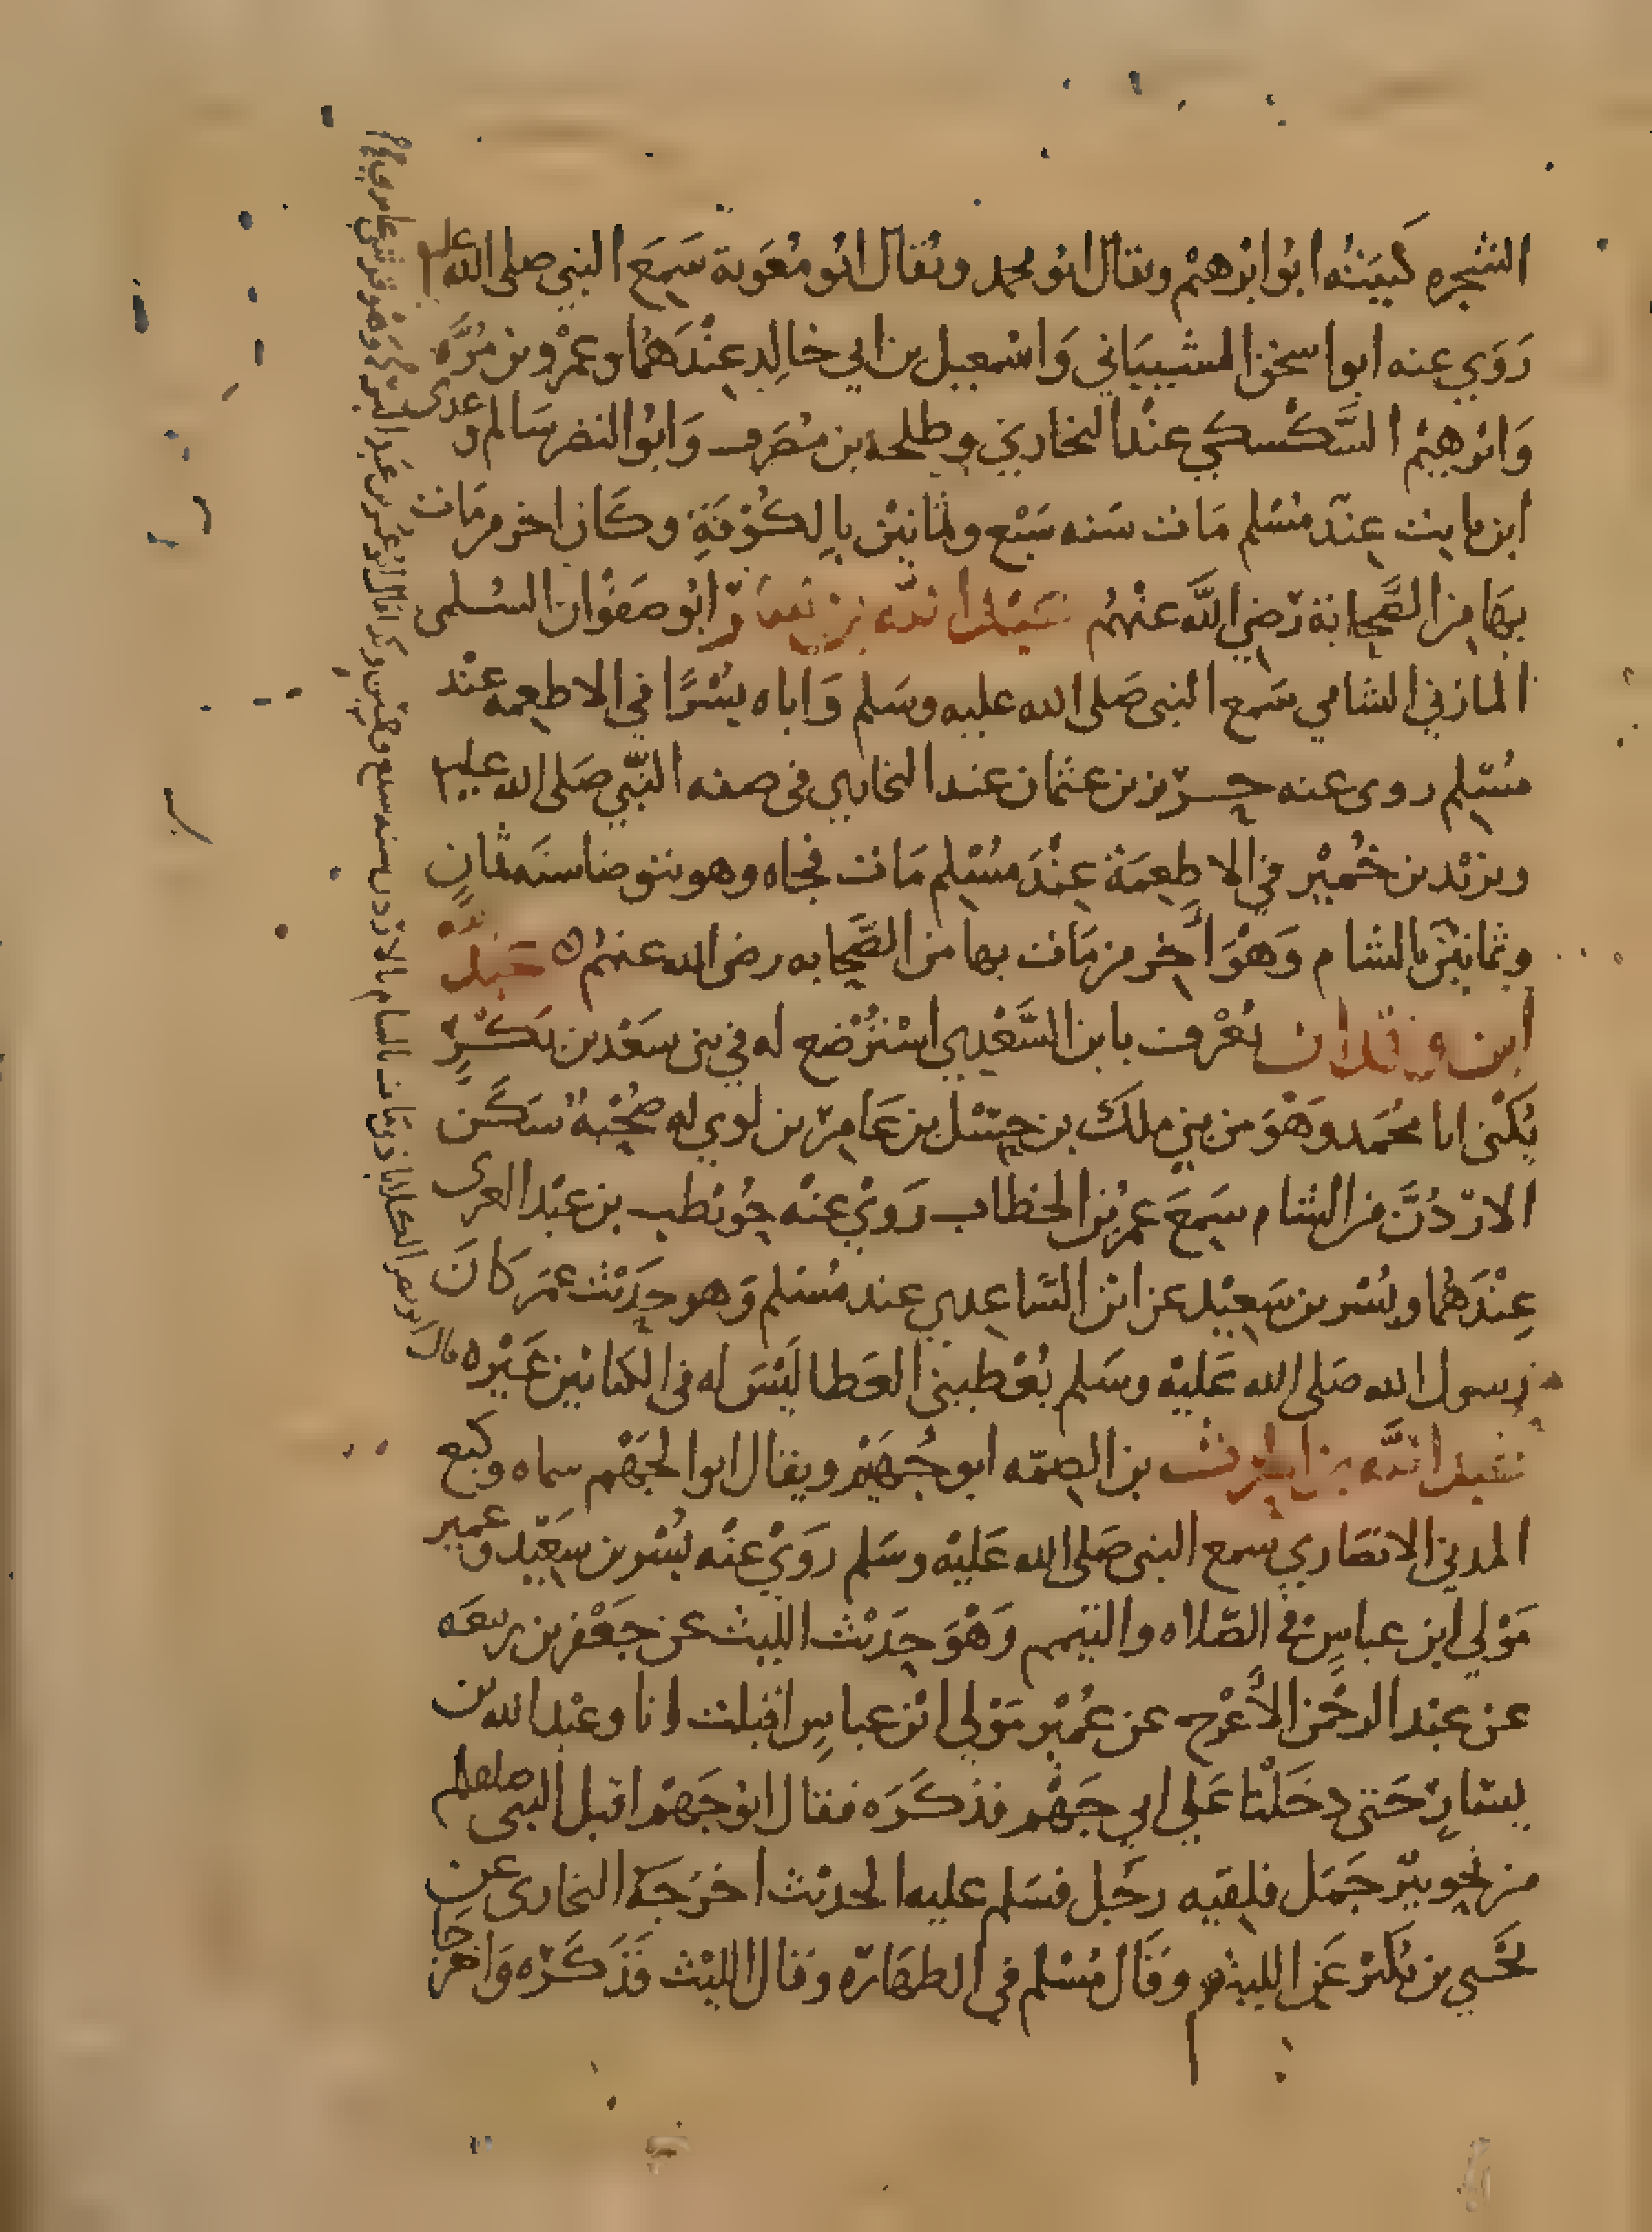 الشجره كنيته ابوابرهيم ويقال ابو محمد ويقال ابو معوية سمع النبي صلى الله عليه
روي عنه ابواسحق الشيباني واسمعيل بن ابي خالد عندهما وعمرو بن مره
وابرهيم السكسكي عند البخاري وطلحه بن مصرف وابو النضر سالم و عدى
ابن ثابت عند مسلم مات سنه سبع وثمانين بالكوفة وكان اخر من مات
بها من الصحابة رضي الله عنهم عبد الله بن بسر ابو صفوان السلمى
المازني الشامي سمع النبى صلى الله عليه وسلم واباه بسرا في الاطعمه عند
مسلم روى عنه حريز بن عثمان عند البخاري فى صفه النبي صلى الله عليه
ويزيد بن خمير في الاطعمة عند مسلم مات فجاه وهو يتوضا سنه ثمان
وثمانين بالشام وهو اخر من مات بها من الصحابه رضى الله عنهم عبد الله
ابن وقدان يعرف بابن السعدي استرضع له في بنى سعد بن بكر
يكنى ابا محمد وهو من بني ملك بن حسل بن عامر بن لوي له صحبة سكن
الاردن من الشام سمع عمر بن الخطاب روي عنه حويطب بن عبد العزى
عندهما وبسر بن سعيد عن ابن الساعدي عند مسلم وهو حديث عمر كان
رسول الله صلى الله عليه وسلم يعطيني العطا ليس له فى الكتابين غيره
عبد الله بن الحرث بن الصمه ابو جهيم ويقال ابوا الجهم سماه وكيع
المدني الانصاري سمع النبى صلى الله عليه وسلم روي عنه بسر بن سعيد و عمير
مولي ابن عباس في الصلاه والتيمم وهو حديث الليث عن جعفر بن ربيعه
عن عبد الرحمن الاعرج عن عمير مولي ابن عباس اقبلت انا وعبد الله بن
يسار حتى دخلنا علي ابي جهم فذكره فقال ابو جهم اقبل النبى صلعم
من نحو بير جمل فلقيه رجل فسلم عليه الحديث اخرجه البخارى عن
يحيي بن بكير عن الليث وقال مسلم في الطهارة وقال الليث فذكره واخرجا
قال ابو نصر الكلاباذي مات بالشام بالاردن سنه سبع وخمسين ذكر اقال ابو عمر بن عبد البر وهو قرشى عامري